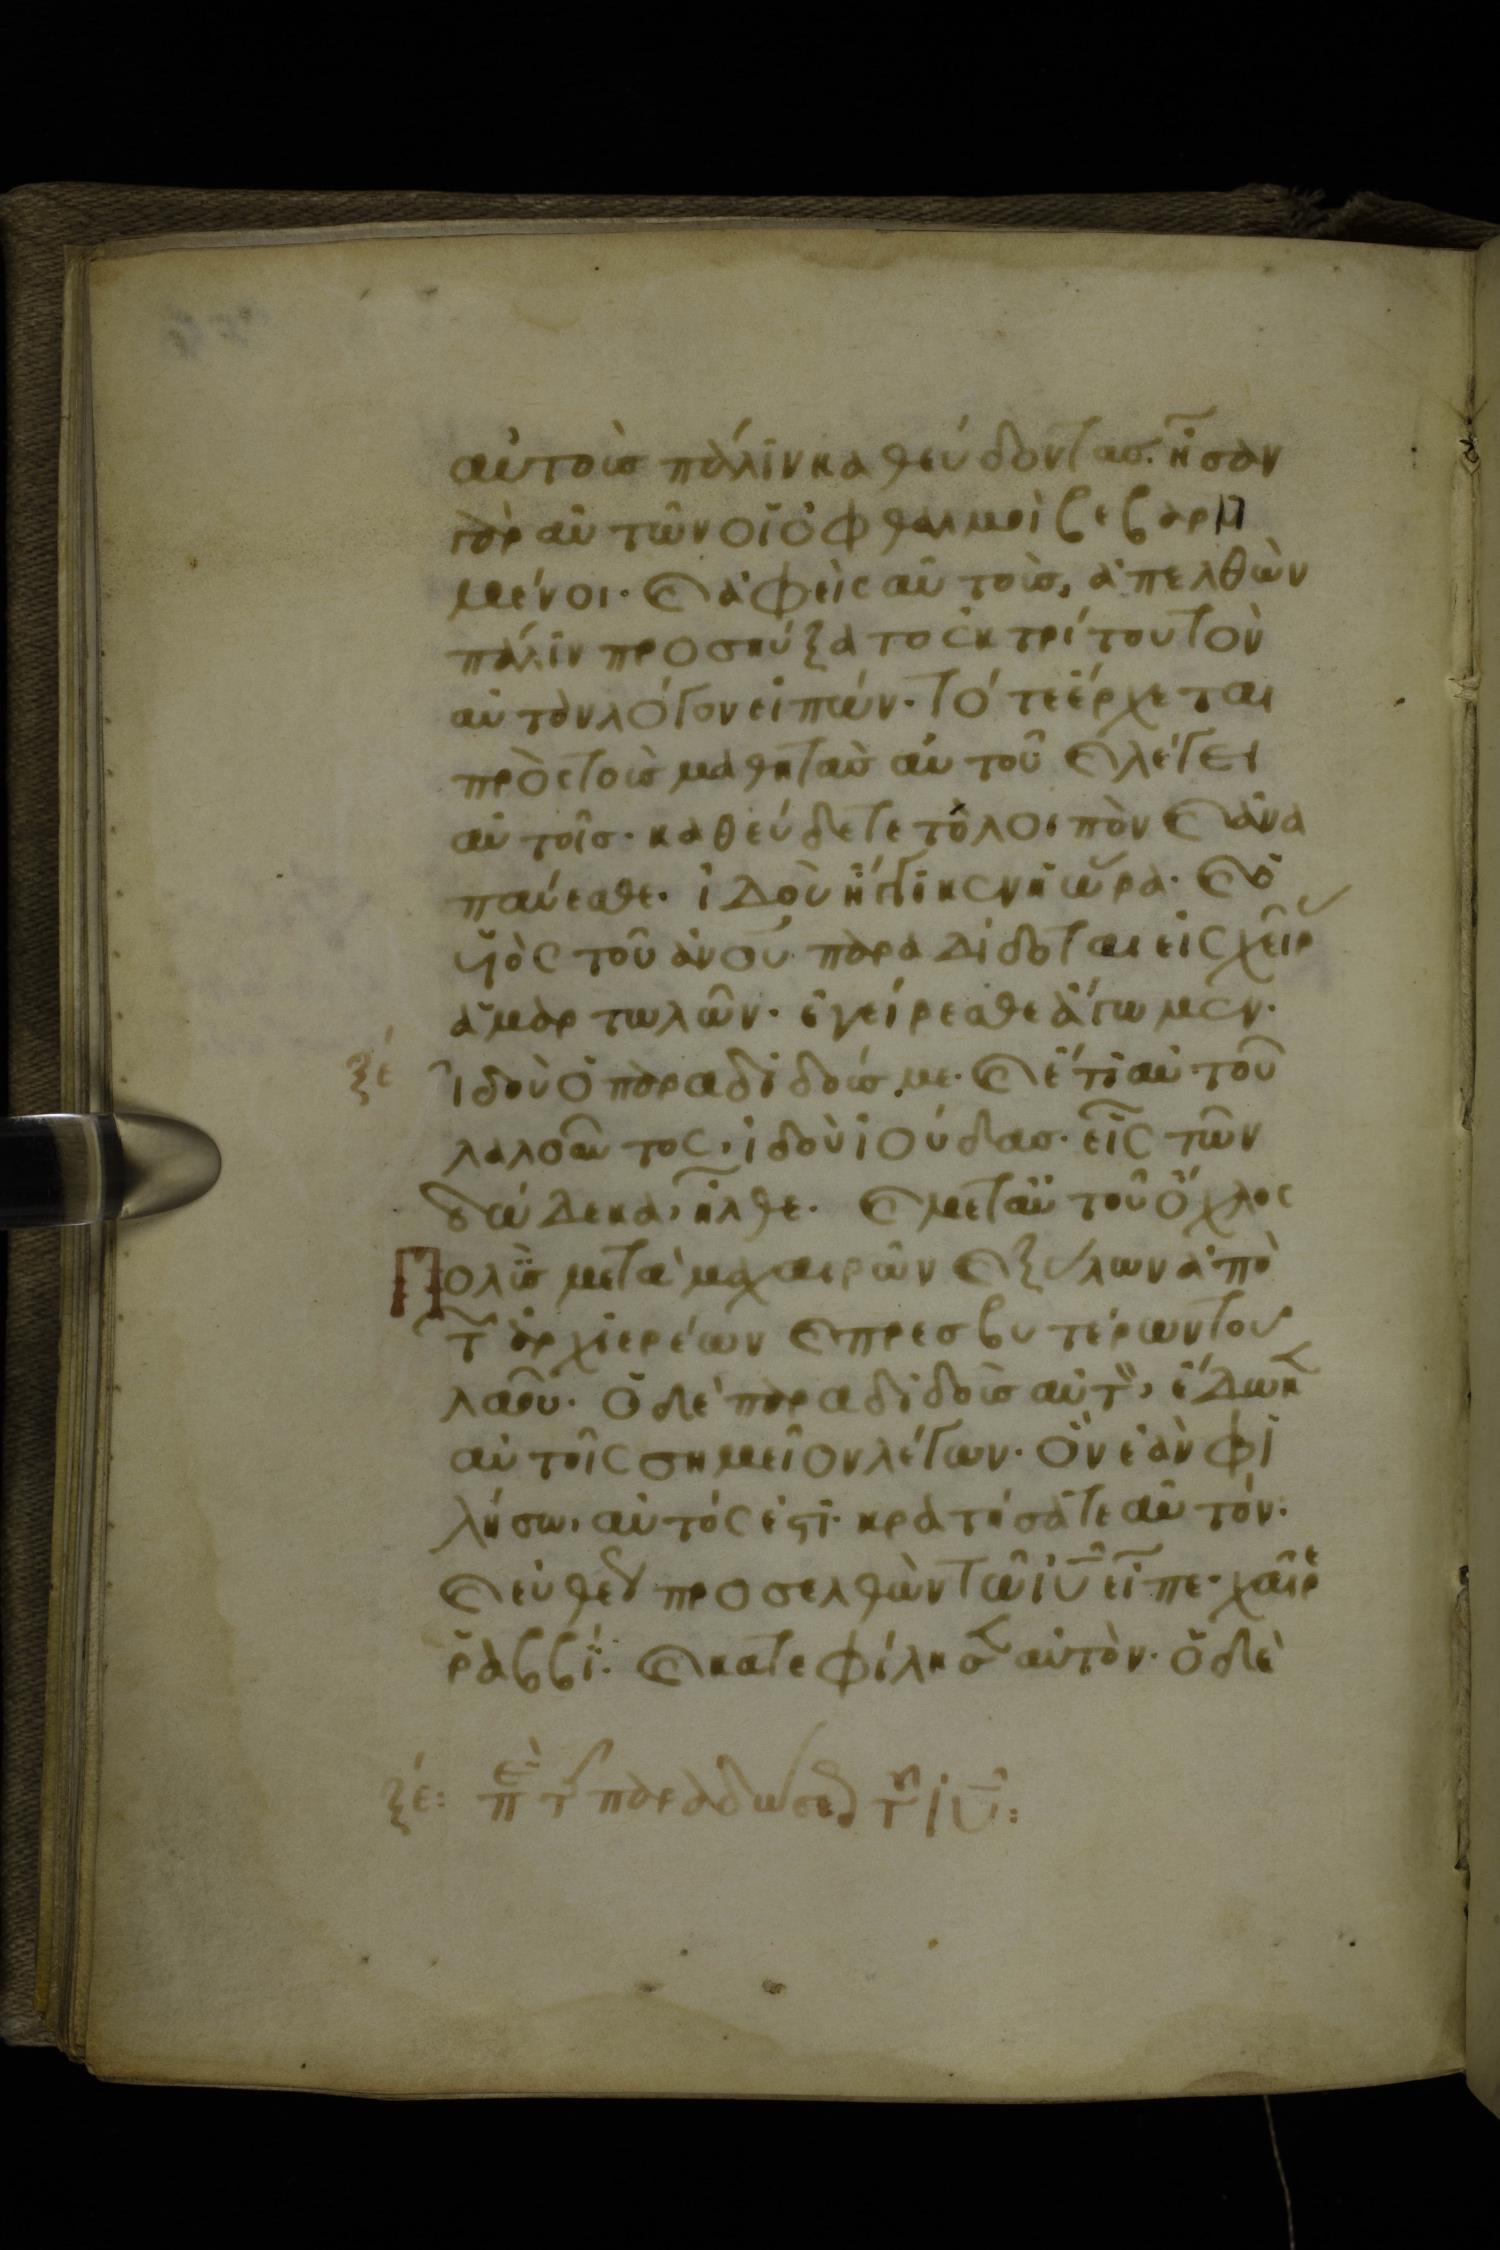 αὐτοὺσ πάλϊν καθεύδοντασ. ἦσαν
γὰρ αὐτῶν οἱ ὀφθαλμοὶ βεβαρη
μένοι. καὶ ἀφεὶς αὐτοὺσ, ἀπελθὼν
πάλϊν προσηύξατο ἐκ τρίτου τὸν
αὐτὸν λόγον εἰπών. τότε ἔρχεται
πρὸς τοὺσ μαθητὰσ αὐτοῦ καὶ λέγει
αὐτοῖσ. καθεύδετε τὸ λοιπὸν καὶ ἀνα
παύεσθε. ἰδοὺ ἤγγϊκεν ἡ ὥρα. καὶ ὁ
υἱὸς τοῦ ἀνου παραδίδοται εἰς χεῖρ
ἁμαρτωλῶν. ἐγείρεσθε ἄγωμεν.
ξέ ἰδοὺ ὁ παραδιδούσ με. καὶ ἔτι αὐτοῦ
λαλοῦντος, ἰδοὺ ἰούδασ. εἷς τῶν
δώδεκα, ἦλθε. καὶ μετ αὐτοῦ ὄχλος
Πολὺσ μετὰ μαχαιρῶν καὶ ξύλων ἀπὸ
τ ἀρχϊερέων καὶ πρεσβυτέρων του
λαοῦ. ὁ δὲ παραδιδοὺσ αὐτ, ἔδωκ
αὐτοῖς σημεῖον λέγων. ὃν ἐὰν φι
λήσω, αὐτός ἐστϊ. κρατήσατε αὐτόν.
καὶ εὐθε προσελθὼν τῶ ιυ εἶπε. χαῖρε
ῥαββί. καὶ κατεφίλησ αὐτὸν. ὁ δὲ
ξέ: π τ παραδώσε τ ιυ: